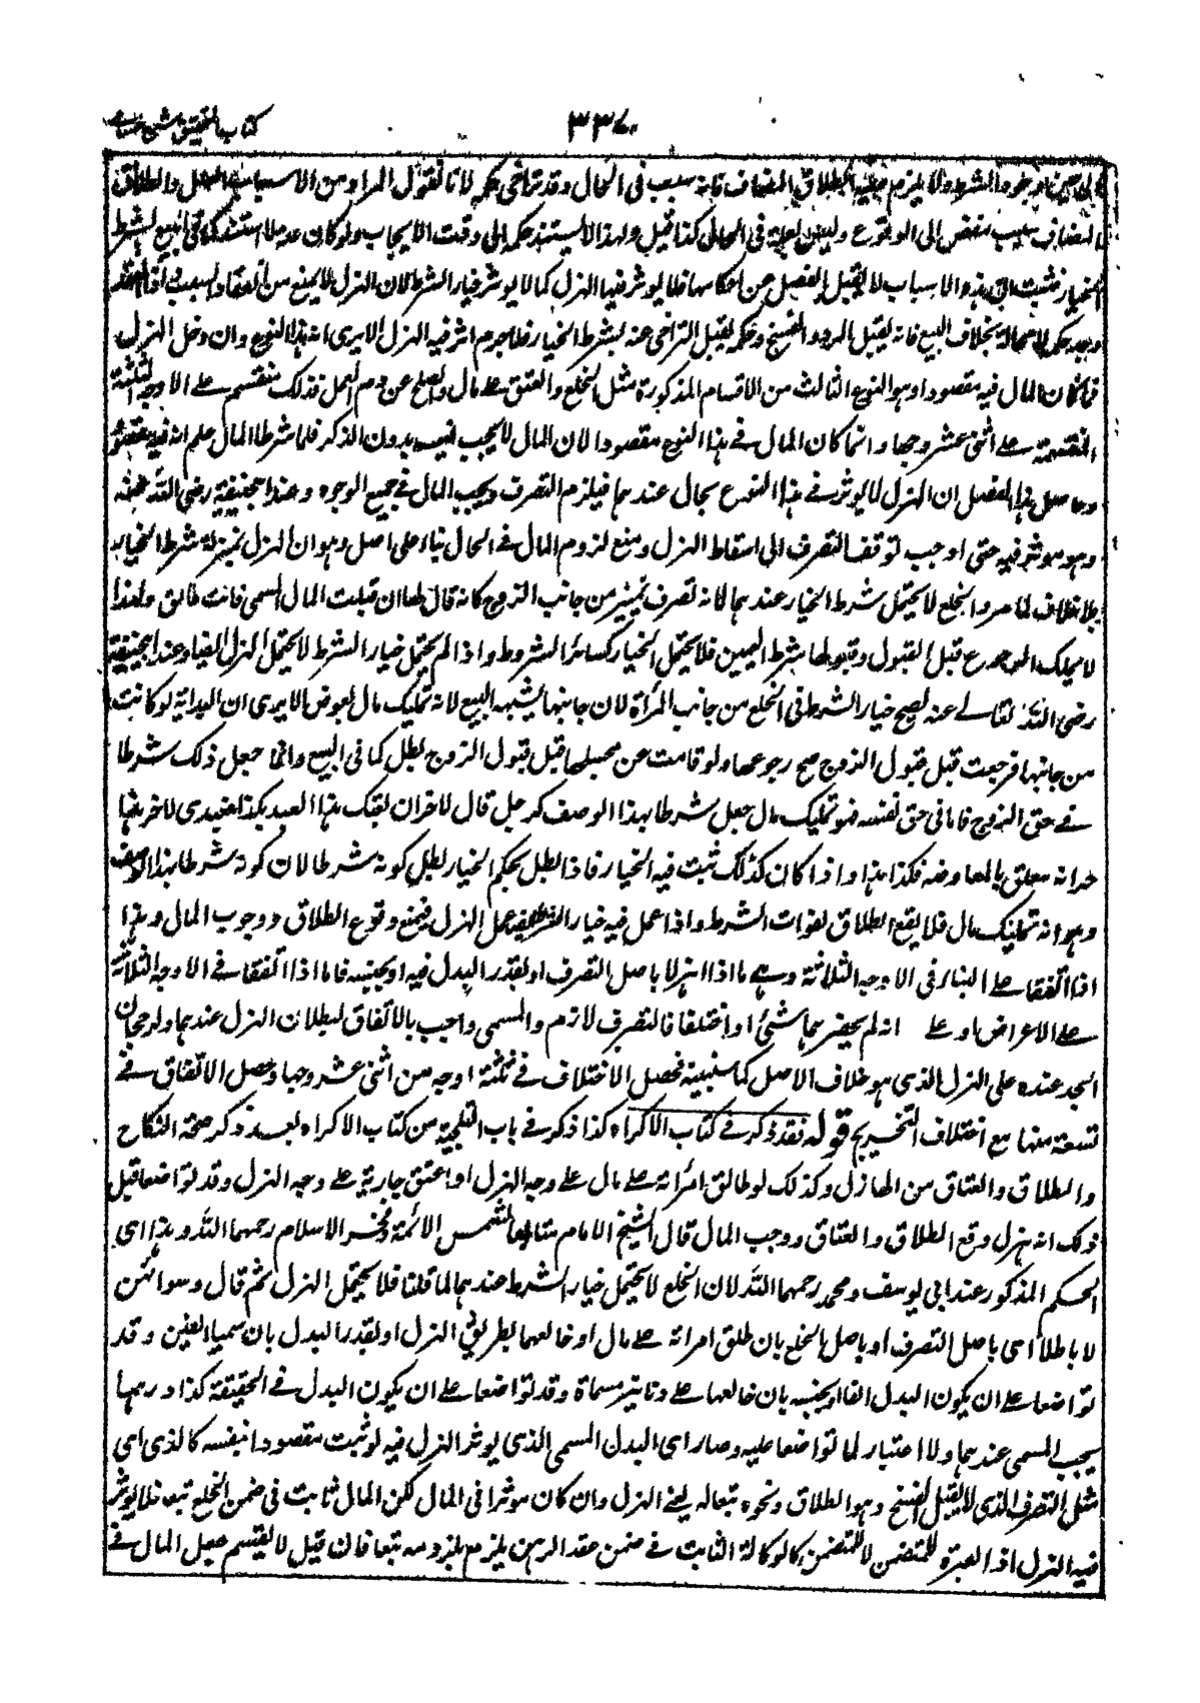 كتاب التحقيق شرح حسامي
٣٣٧
الى حين وجود الشرط ولا يلزم عليه الطلاق المضاف فانه سبب فى الحال وقد تراخى حكمه لانا نقول المراد من الاسباب العلل والطلاق
المضاف سبب مفض الى الوقوع وليس بعلة فى الحال كذا قيل ولهذا لا يستند حكمه الى وقت الايجاب ولو كان علة لاستند كما فى البيع بشرط
الخيار فثبت ان هذه الاسباب لا تقبل الفصل عن احكامها فلا يوثر فيها الهزل كما لا يوثر خيار الشرط لان الهزل لا يمنع من انعقاد السبب اذا انعقد
وجد حكمه لا محالة بخلاف البيع فانه يقبل الرد والفسخ وحكمه يقبل التراخى عنه بشرط الخيار فلا جرم اثر فيه الهزل الا يرى ان هذا النوع وان دخل الهزل
فما كان المال فيه مقصودا وهو النوع الثالث من الاقسام المذكورة مثل الخلع والعتق على مال والصلح عن دم العمد فذلك منقسم على الاوجه الثلثة
المنقسمة على اثنى عشر وجها وانما كان المال فى هذا النوع مقصودا لان المال لا يجب فيه بدون الذكر فلما شرطا المال علم انه فيه مقصود
وحاصل هذا الفصل ان الهزل لا يوثر فى هذا النوع بحال عندهما فيلزم التصرف ويجب المال فى جميع الوجوه وعند ابيحنيفة رضى الله عنه
وهو موثر فيه حتى اوجب توقف التصرف الى اسقاط الهزل ومنع لزوم المال فى الحال بناء على اصل وهو ان الهزل بمنزلة شرط الخيار
بلا خلاف لما مر والخلع لا يحتمل شرط الخيار عندهما لانه تصرف يمين من جانب الزوج كانه قال لها ان قبلت المال المسمى فانت طالق ولهذا
لا يملك الرجوع قبل القبول وقبولها شرط اليمين فلا يحتمل الخيار كسائر الشروط واذا لم يحتمل خيار الشرط لا يحتمل الهزل ايضا وعند ابيحنيفة
رضى الله تعالى عنه يصح خيار الشرط فى الخلع من جانب المرأة لان جانبها يشبه البيع لانه تمليك مال بعوض الا يرى ان البداية لو كانت
من جانبها فرجعت قبل قبول الزوج صح رجوعها ولو قامت عن مجلسها قبل قبول الزوج بطل كما فى البيع وانما جعل ذلك شرطا
فى حق الزوج فاما فى حق نفسه فهو تمليك مال جعل شرطا بهذا الوصف كرجل قال لاخر ان بعتك هذا العبد بكذا فعبدى الاخر هذا
حر انه معلق بالمعاوضة فكذا هذا واذا كان كذلك ثبت فيه الخيار فاذا بطل بحكم الخيار بطل كونه شرطا لان كونه شرطا بهذا الوصف
وهو انه تمليك مال فلا يقع الطلاق لفوات الشرط واذا عمل فيه خيار الشرط يعمل الهزل فيمنع وقوع الطلاق ووجوب المال وهذا
اذا اتفقا على البناء فى الاوجه الثلاثة وهى ما اذا هزلا باصل التصرف او بقدر البدل فيه او بجنسه فاما اذا اتفقا فى الاوجه الثلاثة
على الاعراض او على انه لم يحضرهما شئ او اختلفا فالتصرف لازم والمسمى واجب بالاتفاق لبطلان الهزل عندهما ولرجحان
الجد عنده على الهزل الذى هو خلاف الاصل كما سنبينه فحصل الاختلاف فى ثلثة اوجه من اثنى عشر وجها وحصل الاتفاق فى
تسعة منها مع اختلاف التخريج قوله فقد ذكر فى كتاب الاكراه كذا ذكر فى باب التلجية من كتاب الاكراه بعد ذكر صحة النكاح
والطلاق والعتاق من الهازل وكذلك لو طالق امرأته على مال على وجه الهزل او اعتق جارية على وجه الهزل وقد تواضعا قبل
ذلك انه هزل وقع الطلاق والعتاق ووجب المال قال الشيخ الامام متابعا لشمس الائمة وفخر الاسلام رحمهما الله وهذا اى
الحكم المذكور عند ابى يوسف ومحمد رحمهما الله لان الخلع لا يحتمل خيار الشرط عندهما لما قلنا فلا يحتمل الهزل ثم قال وسواء هزلا
باصله اى باصل التصرف او باصل الخلع بان طلق امراته على مال او خالعها بطريق الهزل او بقدر البدل بان سميا الفين وقد
تواضعا على ان يكون البدل الفا او بجنسه بان خالعها على دنانير مسماة وقد تواضعا على ان يكون البدل فى الحقيقة كذا درهما
يجب المسمى عندهما ولا اعتبار لما تواضعا عليه وصار اى البدل المسمى الذى يوثر الهزل فيه لو ثبت مقصودا بنفسه كالذى اى
مثل التصرف الذى لا يقبل الفسخ وهو الطلاق ونحوه تبعا له يعنى الهزل وان كان موثرا فى المال لكن المال ثابت فى ضمن الخلع تبعا فلا يوثر
فيه الهزل اذ العبرة للمتضمن لا للمتضمن كالوكالة الثابت فى ضمن عقد الرهن يلزم بلزومه تبعا فان قيل لا يستقيم جعل المال فى